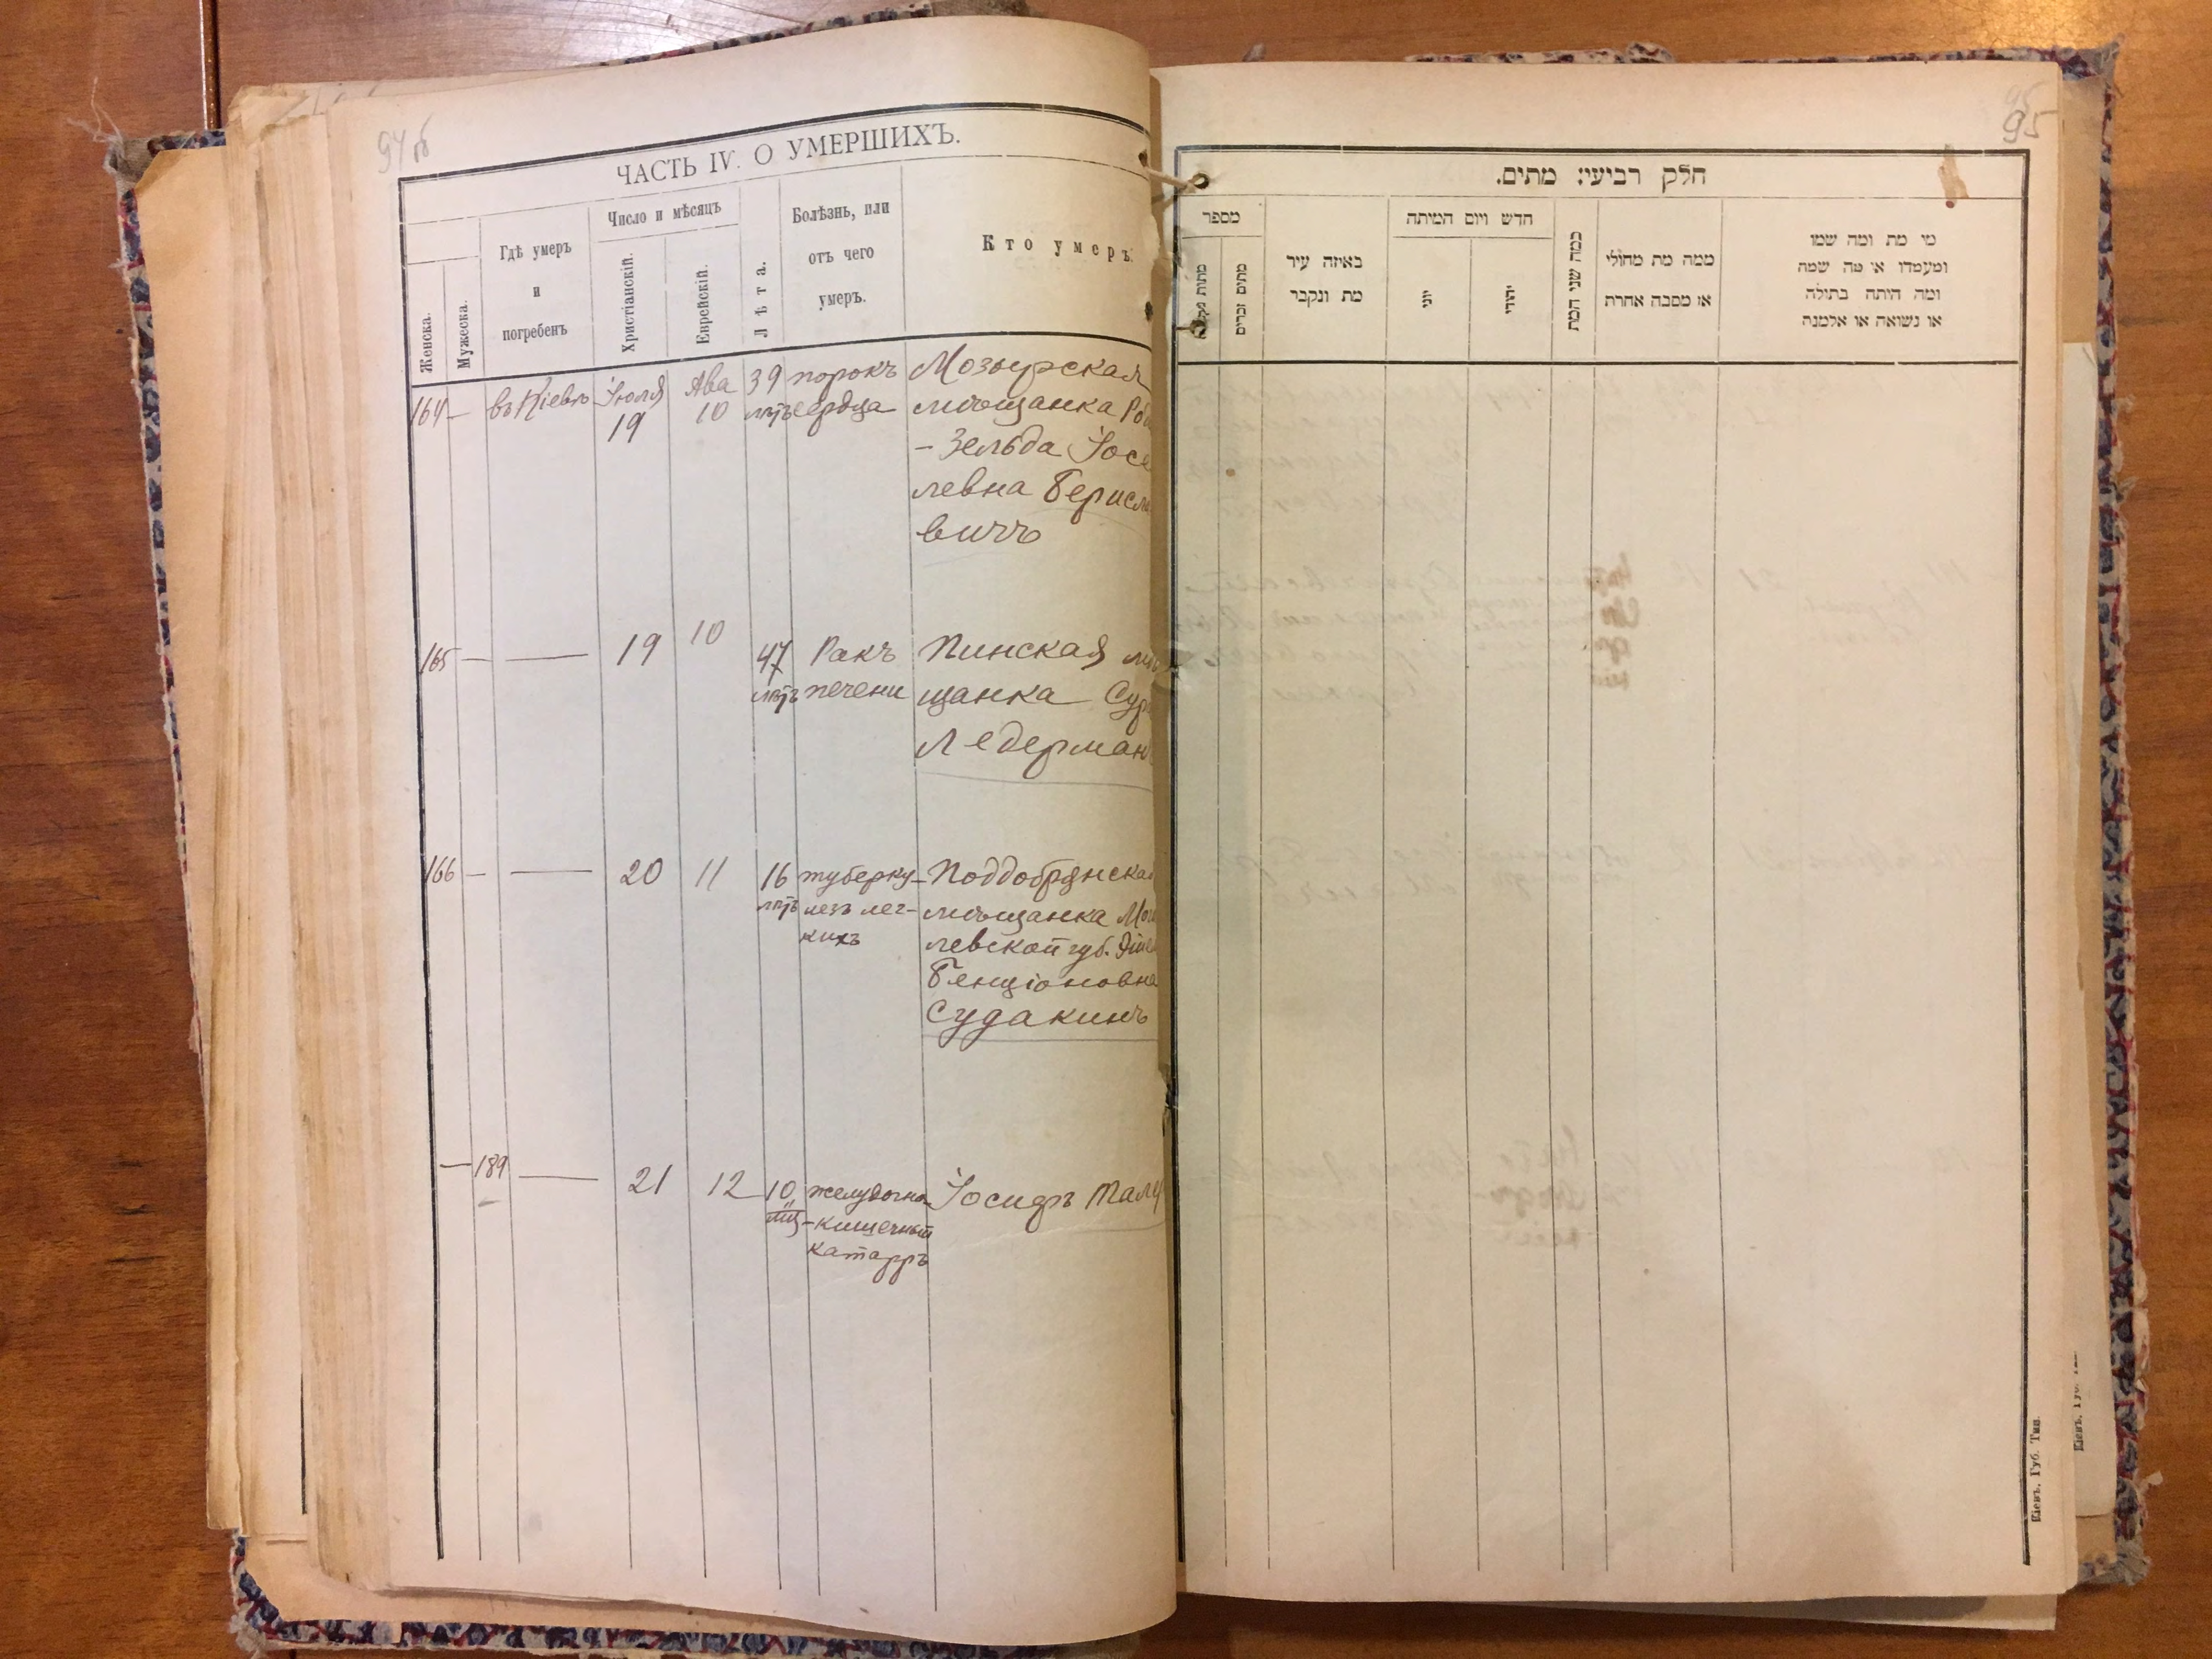 94 об
ЧАСТЬ IV. О УМЕРШИХЪ.
Женска.
Мужеска.
Гдѣ умеръ
и
погребенъ
Число и мѣсяцъ
Христіанскій.
Еврейскій.
Лѣта.
Болѣзнь, или
отъ чего
умеръ.
Кто умеръ.
164 — въ Кіевѣ Іюля 19 Ава 10 39 лѣтъ
порокъ
сердца
Мозырская
мѣщанка
-Зельда Іосе
левна Берисла
вичъ
165 — — 19 10 47 лѣтъ
Ракъ
печени
Пинская мѣ
щанка Сур
Ледерман
166 — — 20 11 16 лѣтъ
туберку-
лезъ лег-
кихъ
Поддобрянская
мѣщанка Моги
левской губ.
Бенціоновна
Судакинъ
— 189 — 21 12 10 мѣс
желудочно
-кишечный
катарръ
Іосифъ
95
חלק רביעי: מתים.
מספר
מתים זכרים
באיזה עיר
מת ונקבר
חדש ויום המיתה
יוני
יהודי
כמה שני המת
ממה מת מחולי
או מסבה אחרת
מי מת ומה שמו
ומעמדו או מה שמה
ומה היתה בתולה
או נשואה או אלמנה
Кіевъ, Губ. Тип.